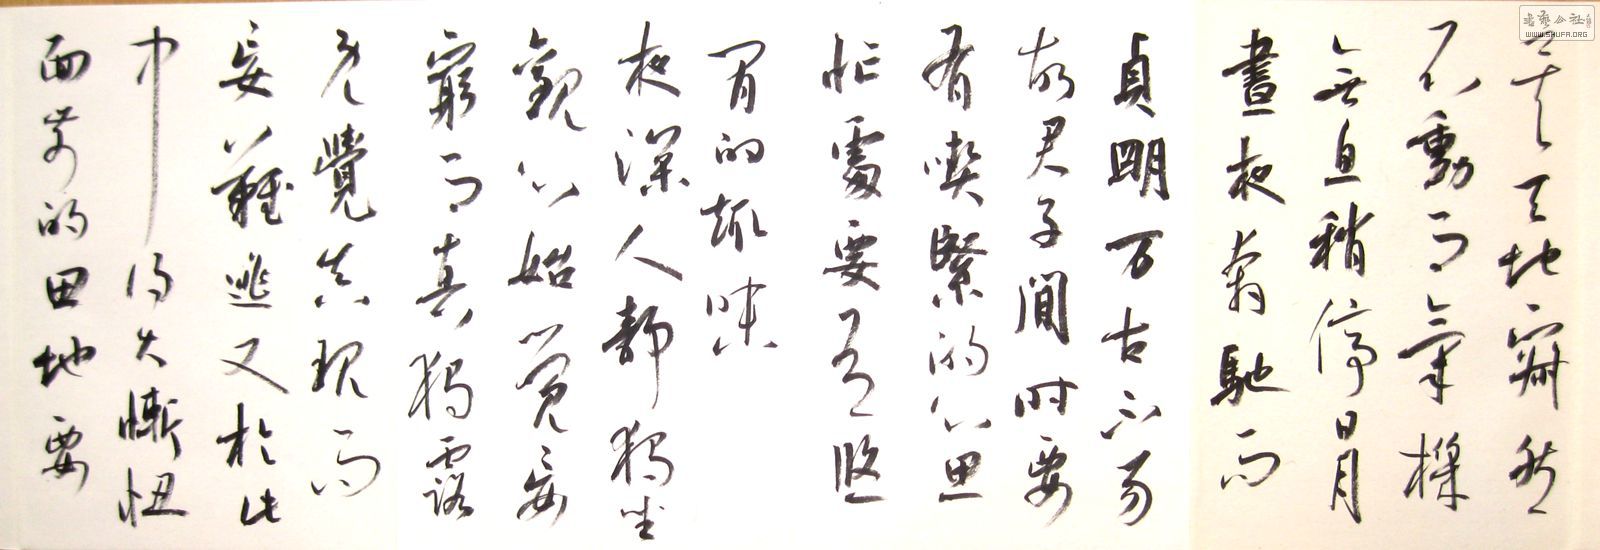 天地寂然
不動而氣機
無息稍停日月
晝夜奔馳而
貞明万古不易
故君子間時要
有喫緊的心思
忙處要有悠
閒的趣味
夜深人靜獨坐
觀心始覺妄
窮而真獨露
既覺真現而
妄難逃又於此
中得大慚忸
面前的田地要
書藝公社
WWW.SHUFA.ORG